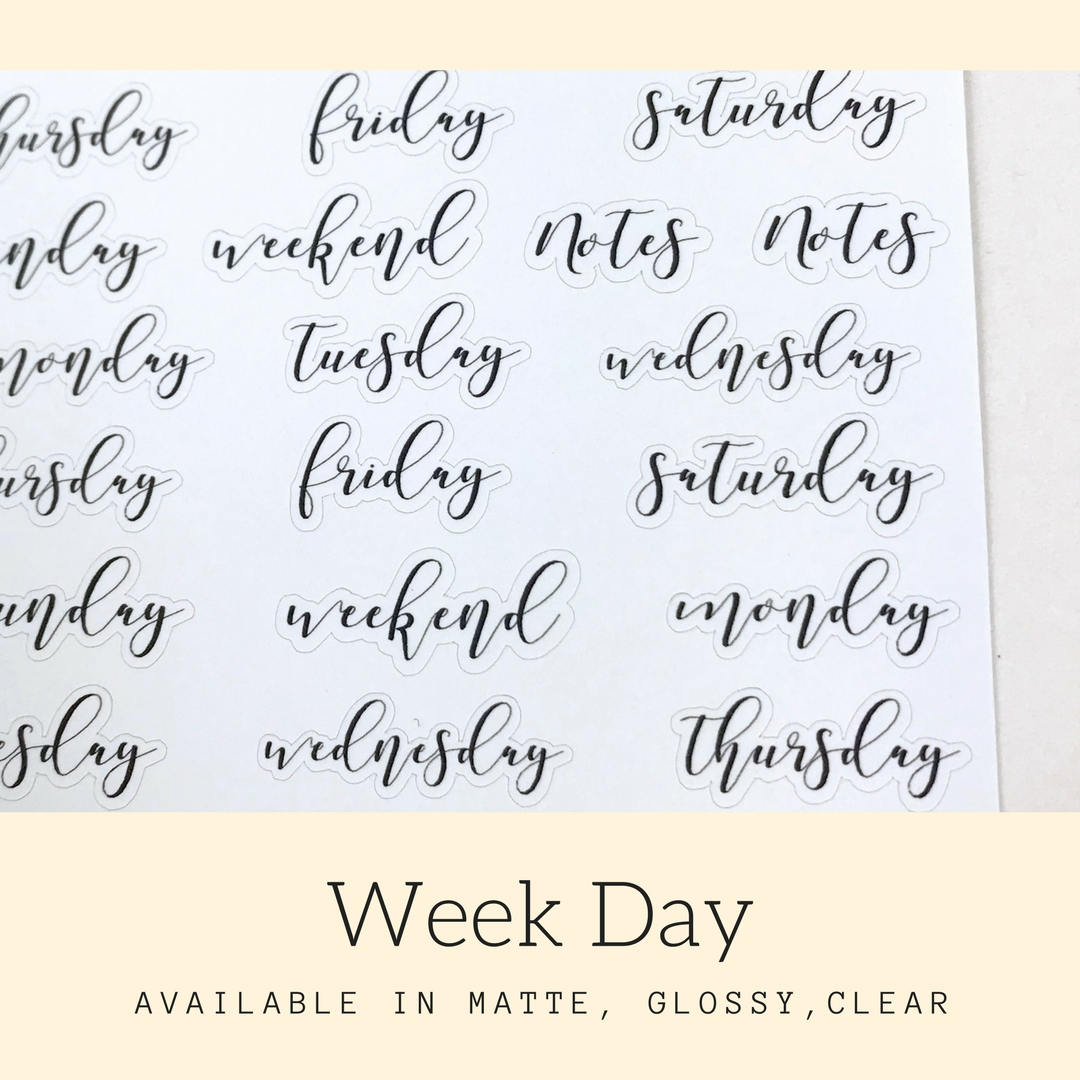 hursday friday saturday
nday weekend Notes Notes
monday Tuesday wednesday
ursday friday saturday
unday weekend monday
esday wednesday Thursday
Week Day
AVAILABLE IN MATTE, GLOSSY,CLEAR